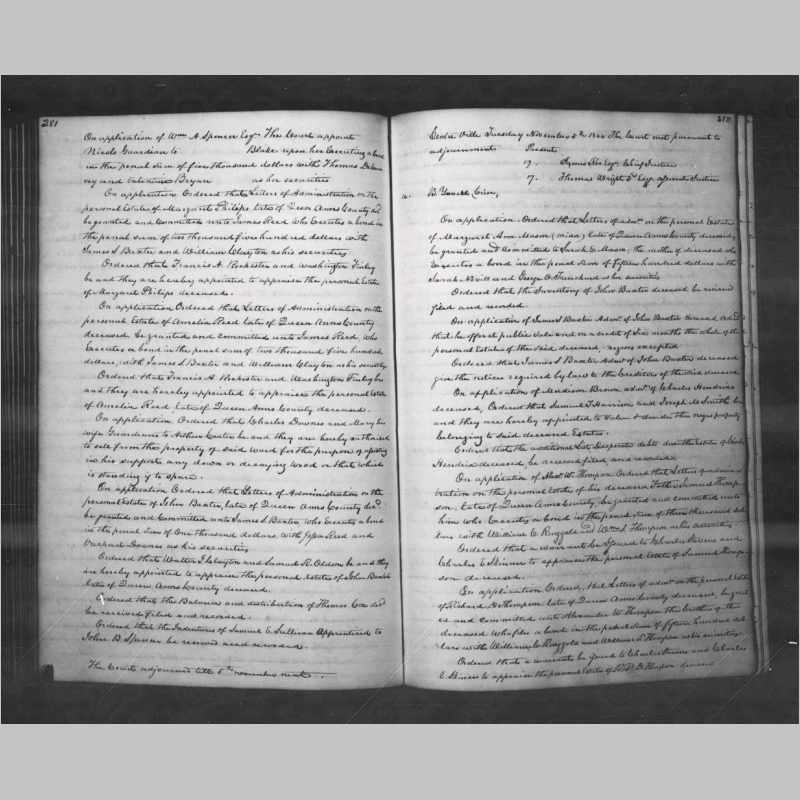 281
On application of Wm A. Spencer Esqr The Court appoint
Nicols Guardian to Blake upon her Executing a bond
in the penal sum of five thousand dollars with Thomas
and Valentine Bryan as her securities
On application Ordered that Letters of Administration on the
personal Estate of Margaret Philips late of Queen Anns County decd
be granted and Committed unto James Reed who Executes a bond in
the penal sum of two thousand five hundred dollars with
James S Baxter and William Clayton as his securities
Ordered that Francis A. Rochester and Washington Finley
be and they are hereby appointed to appraise the personal Estate
of Margaret Philips deceased.
On application Ordered that Letters of Administration on the
personal Estate of Amelia Reed late of Queen Anns County
deceased be granted and committed unto James Reed, who
Executes a bond in the penal sum of two thousand five hundred
dollars, with James S Baxter and William Clayton as his security
Ordered that Francis A Rochester and Washington Finley be
and they are hereby appointed to appraise the personal Estate
of Amelia Reed late of Queen Anns County deceased.
On application Ordered that Charles Downes and Mary his
wife Guardians to Arthur Coater be and they are hereby authorised
to sell from the property of said ward for the purpose of
in his support any down or decaying Wood or that which
is standing to spare.
On application Ordered that Letters of Administration on the
personal estate of John Baxter, late of Queen Anns County decd
be granted and Committed unto James S Baxter who Executes a bond
in the penal sum of One thousand dollars with Reed and
Downes as his securities
Ordered that Walter J Clayton and Samuel R. Oldson be and they
are hereby appointed to appraise the personal estate of John Baxter
late of Queen Anns County deceased.
Ordered that the Balance and distribution of Thomas decd
be received filed and recorded.
Ordered that the Indentures of Samuel E Sullivan Apprenticed to
John B Spencer be received and recorded.
The Court adjourned till 5th November next.
Centre Ville Tuesday November 5th The Court met pursuant to
adjournment Present
Esqr Chief Justice
Thomas Wright 3d Esqr associate Justice
On application Ordered that Letters of admn on the personal Estate
of Margaret Ann Mason late of Queen Anns County deceased,
be granted and committed to Sarah E Mason, the mother of deceased who
Executes a bond in the penal sum of fifteen hundred dollars with
Sarah and George as her sureties
Ordered that the Inventory of John Baxter deceased be received
filed and recorded.
On application of James S Baxter Admr of John Baxter deceased
that he offer at public sale and on a credit of Six months the whole of the
personal Estate of the said deceased, negroes excepted
Ordered that James S Baxter Admr of John Baxter deceased
give the notice required by law to the Creditors of the said deceased
On application of Madison Brown admr of Charles Hendrix
deceased, Ordered that Samuel T Harrison and Joseph Smith be
and they are hereby appointed to Value & divide the negro property
belonging to said deceased Estate.
Ordered that the additional List Desperate debts due the Estate of Charles
Hendrix deceased, be received filed and recorded
On application of W. Thompson Ordered that Letters of
on the personal estate of his deceased Father Samuel
late of Queen Anns County be granted and committed unto
him who Executes a bond in the penal sum of three thousand
with William C. Ruggels and Wm S Thompson as his securities
Ordered that a warrant be issued to Charles Stevens and
Charles C Skinner to appraise the personal Estate of Samuel
deceased.
On application Ordered, that Letters of admn on the personal Estate
of Richard D Thompson late of Queen Anns County deceased, be
and committed unto Alexander W Thompson the brother of the
deceased who files a bond in the penal sum of fifteen hundred
with William C Ruggels and William S Thompson as his sureties
Ordered that a warrant be issued to Charles Stevens and Charles
C Skinner to appraise the personal Estate of D Thompson deceased